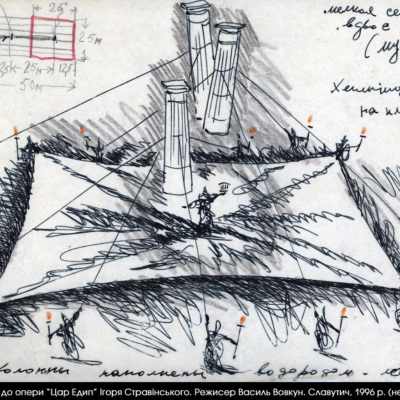 25
25м
25м 12,5
50м
мелкая се
вдвое
на
колонны наполнены водородом - ле
до опери "Цар Едип" Ігоря Стравінського. Режисер Василь Вовкун. Славутич, 1996 р. (не